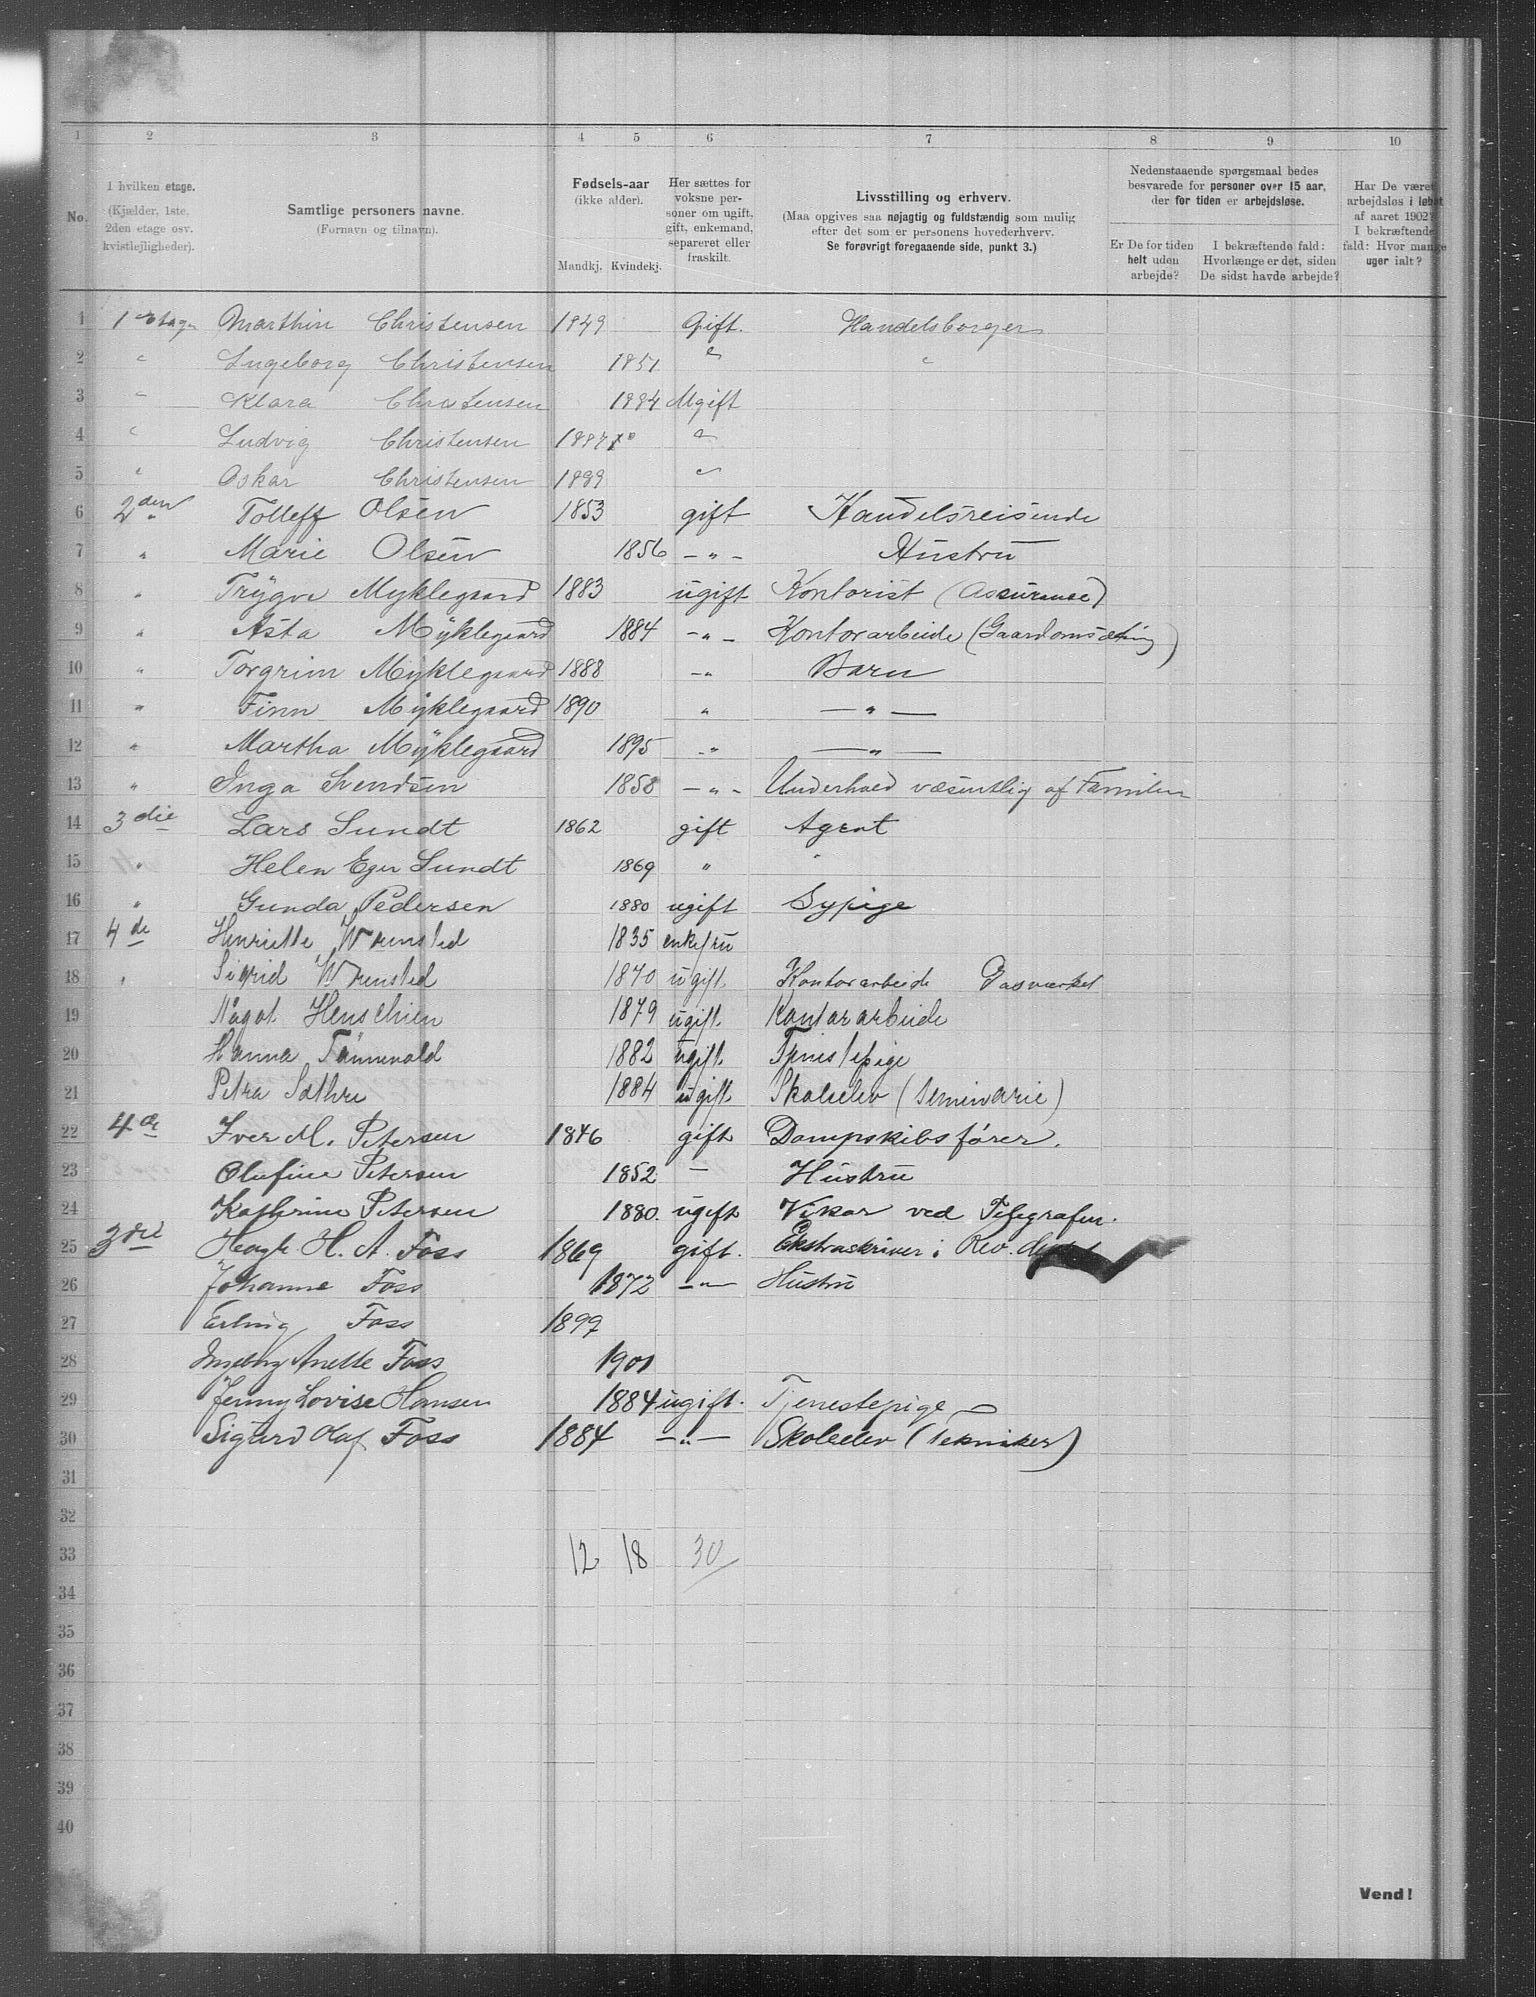 1 2 3 4 5 6 7 8 9 10
No.
I hvilken etage.
(Kjælder, 1ste,
2den etage osv.
kvistlejligheder).
Samtlige personers navne.
(Fornavn og tilnavn).
Fødsels-aar
(ikke alder).
Mandkj. Kvindekj.
Her sættes for
voksne per-
soner om ugift,
gift, enkemand,
separeret eller
fraskilt.
Livsstilling og erhverv.
(Maa opgives saa nøjagtig og fuldstændig som mulig
efter det som er personens hovederhverv.
Se forøvrigt foregaaende side, punkt 3.)
Nedenstaaende spørgsmaal bedes
besvarede for personer over 15 aar,
der for tiden er arbejdsløse.
Er De for tiden
helt uden
arbejde?
I bekræftende fald:
Hvorlænge er det, siden
De sidst havde arbejde?
Har De været
arbejdsløs i løbet
af aaret 1902?
I bekræftende
fald: Hvor mange
uger ialt?
1 1 Etage Marthin Christensen 1849 Gift. Handelsborger
2 " Ingeborg Christensen 1851 " "
3 " Klara Christensen 1884 Ugift
4 " Ludvig Christensen "
5 " Oskar Christensen 1889 "
6 2den Tolleff Olsen 1853 gift Handelsreisende
7 " Marie Olsen 1856 - " - Hustru
8 " Trygve Myklegaard 1883 ugift Kontorist (Assurance)
9 " Asta Myklegaard 1884 - " - Kontorarbeide (Gaardomsætning)
10 " Torgrim Myklegaard 1888 - " Barn
11 " Finn Myklegaard 1890 " — " —
12 " Martha Myklegaard 1895 - " — " —
13 " Inga Svendsen 1858 - " - Underhold væsentlig af Familien
14 3die Lars Sundt 1862 gift Agent
15 " Helen Eger Sundt 1869 " "
16 " Gunda Pedersen 1880 ugift Sypige
17 4de Henriette 1835 enkefru
18 " Sigrid 1870 ugift Kontorarbeide Gasværket
19 Dagot Henschien 1879 ugift Kontorarbeide
20 Hanna Tønnevold 1882 ugift Tjenestepige
21 Petra Sæthre 1884 ugift Skoleelev (Seminarie)
22 4de Iver M. Petersen 1846 gift Dampskibsfører.
23 Olufine Petersen 1852 - Hustru
24 Kathrine Petersen 1880. ugift Vikar ved Telegrafen.
25 3die H. A. Foss 1869 gift. Ekstraskriver i Rev. dept.
26 Johanne Foss 1872 - " - Hustru
27 Erling Foss 1899
28 Ingeborg Anette Foss 1901
29 Jenny Lovise Hansen 1884 ugift. Tjenestepige
30 Sigurd Olaf Foss 1884 - " - Skoleelev (Tekniker)
31
32
33 12 18 30
34
35
36
37
38
39
40
Vend!